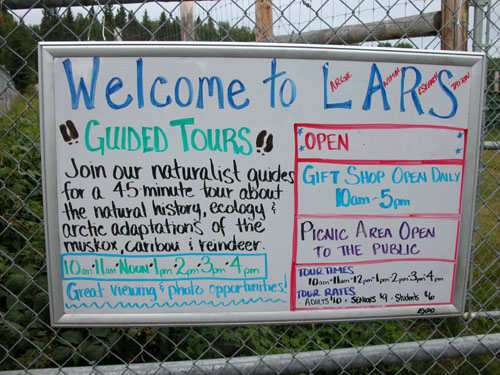 Welcome to LARS
LARGE ANIMAL RESEARCH STATION
GUIDED TOURS
Join our naturalist guides
for a 45 minute tour about
the natural history, ecology &
arctic adaptations of the
muskox, caribou & reindeer.
10am-11am-NOON-1pm-2pm-3pm-4pm
Great viewing & photo opportunities!
OPEN
GIFT SHOP OPEN DAILY
10am-5pm
PICNIC AREA OPEN
TO THE PUBLIC
TOUR TIMES
10am-11am-12pm-1pm-2pm-3pm-4pm
TOUR RATES
ADULTS $10 - SENIORS $9 - Students $6
EXPO